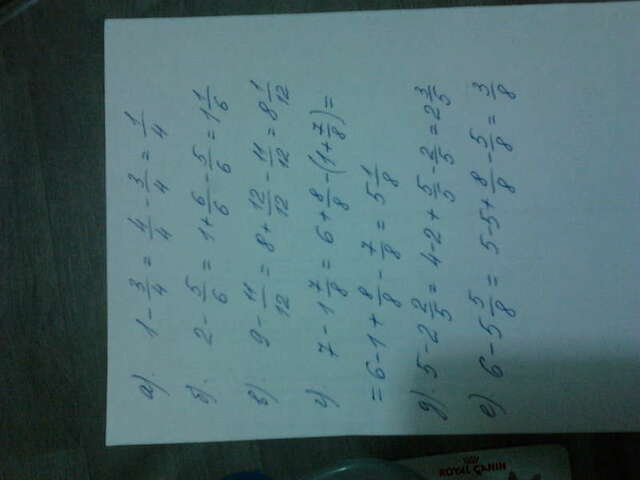 а). 1 - 3/4 = 4/4 - 3/4 = 1/4
б). 2 - 5/6 = 1 + 6/6 - 5/6 = 1 1/6
в). 9 - 11/12 = 8 + 12/12 - 11/12 = 8 1/12
г). 7 - 1 7/8 = 6 + 8/8 - (1 + 7/8) =
= 6 - 1 + 8/8 - 7/8 = 5 1/8
д) 5 - 2 2/5 = 4 - 2 + 5/5 - 2/5 = 2 3/5
е) 6 - 5 5/8 = 5 - 5 + 8/8 - 5/8 = 3/8
ROYAL CANIN